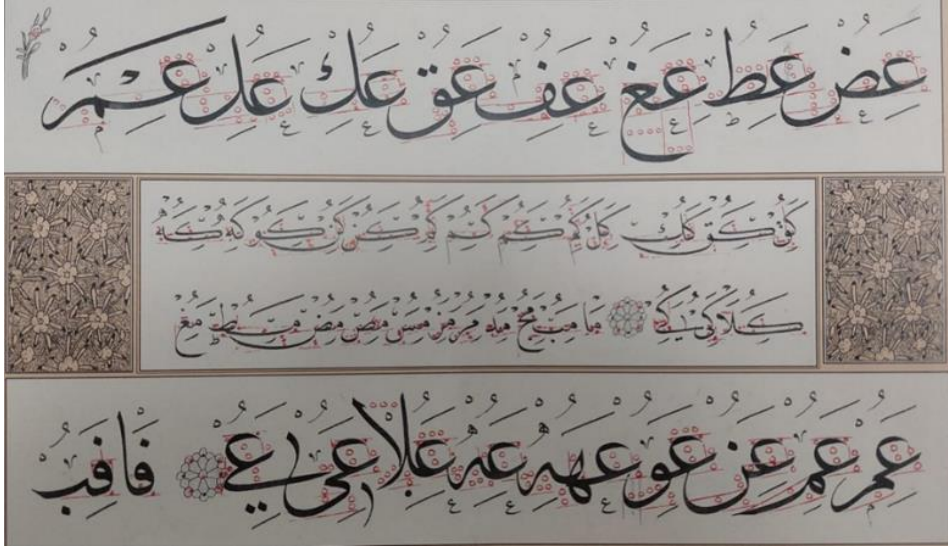 عض عط عغ عف عق عك عل عم
كق كق كك كل كم كم كم كن كن كو كه كه
كلا كى كي ما مب مج مد مر مز مس مص مض مط مغ
عم عم عن عو عه عه علا عى عي فا فب